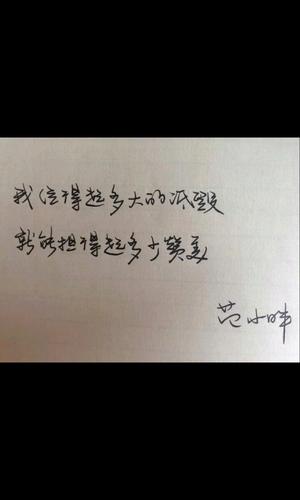 我经得起多大的诋毁
就能担得起多少赞美
范小